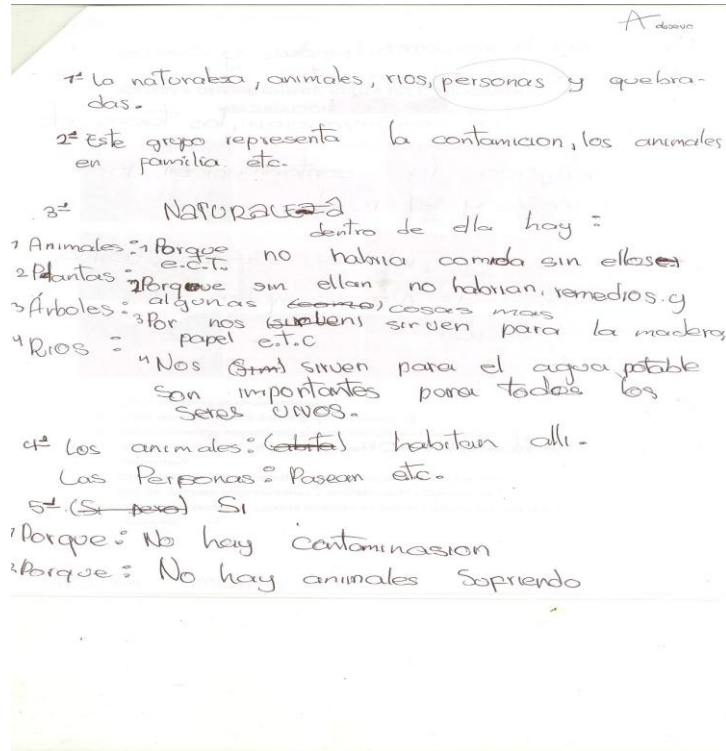 A
1ª La naturaleza, animales, rios, personas y quebra-
das.
2ª Este grupo representa la contamicion, los animales
en familia. etc.
3ª NATURALEZA
dentro de ella hay :
1 Animales : 1 Porque no habria comida sin ellos
e.c.t.
2 Plantas : 2 Porque sin ellan no habrian, remedios. y
3 Árboles : algunas cosas mas
3 Por nos sirven para la madera,
4 RIOS : papel e.t.c
4 Nos sirven para el agua potable
son importantes para todos los
seres vivos.
4ª Los animales : habitan alli.
Las Personas : Pasean etc.
5ª. SI
1 Porque : No hay contaminasion
2 Porque : No hay animales Sopriendo